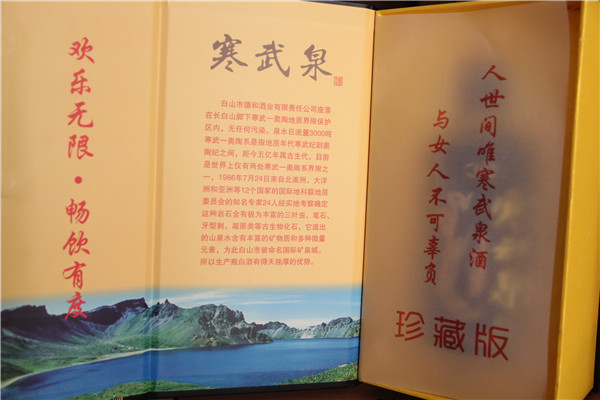 欢乐无限·畅饮有度
寒武泉
白山市德和酒业有限责任公司座落
在长白山脚下寒武—奥陶地质界限保护
区内，无任何污染，泉水日流量3000吨
寒武—奥陶系是指地质年代寒武纪到奥
陶纪之间，距今五亿年属古生代，目前
是世界上仅有两处寒武—奥陶系界限之
一，1986年7月24日来自北美洲、大洋
洲和亚洲等12个国家的国际地科联地层
委员会的知名专家24人经实地考察确定
这种岩石含有极为丰富的三叶虫，笔石，
牙型刺，凝囊类等古生物化石，它流出
的山泉水含有丰富的矿物质和多种微量
元素，为此白山市被命名国际矿泉城。
所以生产瓶白酒有得天独厚的优势。
人世间唯寒武泉酒
与女人不可辜负
珍藏版